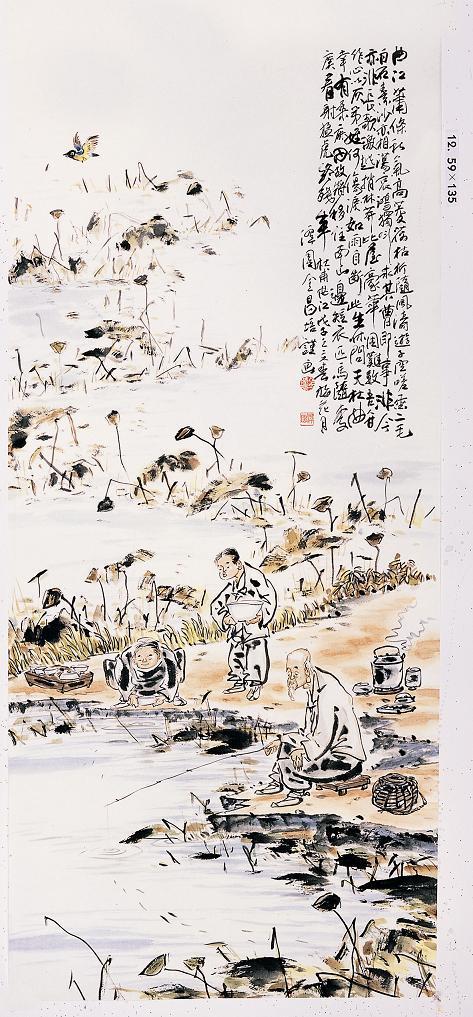 曲江蕭條秋氣高菱荷枯折隨風濤遊子空嗟垂二毛
白石素沙亦相蕩哀鴻獨叫求其曹即事非今
亦非長歌激越梢林莽比屋豪華固難數吾人甘
作心似灰弟姪何傷淚如雨自斷此生休問天杜曲
幸有桑麻田故將移住南山邊短衣匹馬隨李
廣看射猛虎終殘年 杜甫曲江戊子之三春梅花月
謹画
12. 59×135